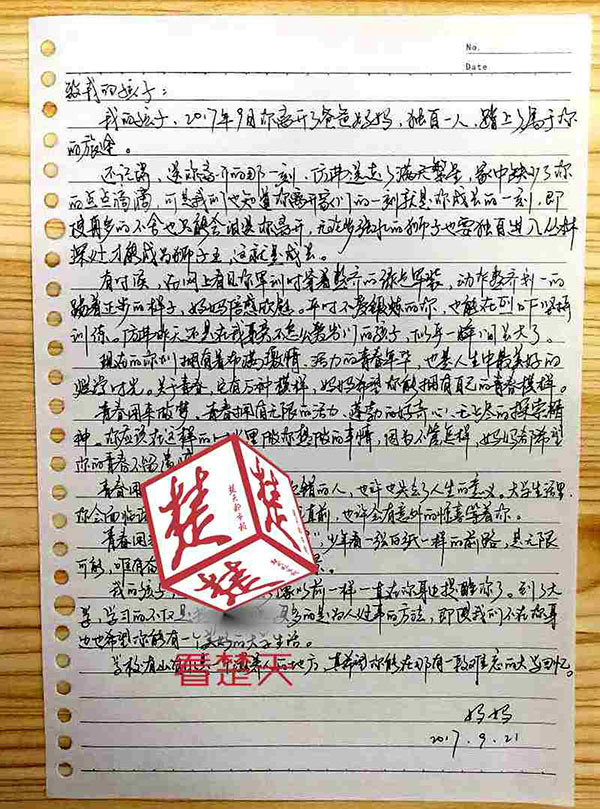 No.
Date
致我的孩子：
我的孩子，2017年9月你离开了爸爸妈妈，独自一人，踏上了属于你
的旅途。
还记得，送你离开的那一刻，仿佛送走了满天繁星，家中缺少了你
的点点滴滴，可是我们也知道你离开家门的一刻就是你成长的一刻，即
使再多的不舍也只能含泪送你离开，
狮子也需独自进入丛林
深处才能成为狮子王，这就是成长。
有时候，在网上看见你军训时穿着整齐的
军装，动作整齐划一的
踏着正步的样子，妈妈倍感欣慰。平时不爱锻炼的你，也能在烈日下坚持
训练。仿佛昨天还是在我身旁不怎么爱出门的孩子，似乎一瞬间长大了。
现在的你们拥有着布满激情、活力的青春年华，也是人生中最美好的
时光。关于青春，它有百种模样，妈妈希望你能拥有自己的青春模样。
青春用来做梦，青春拥有无限的活力、蓬勃的好奇心、无止尽的探索精
神，你应该在这样的
里做你想做的事情，因为不管怎样，妈妈都希望
你的青春不留遗憾。
青春用
错的人，也许也失去了人生的意义。大学生活里
你会面临
直前，也许会有意外的惊喜等着你。
青春用
少年有一张白纸一样的前路，是无限
可能，唯有
我的孩子
像以前一样一直在你身边提醒你了。到了大
学，学习的不仅是
更多的是为人处事的方法，即使我们不在你身
边也希望你能有一个美好的大学生活。
学校有山有水
是
的地方，真希望你能在那有一段难忘的大学回忆。
妈妈
2017.9.21
楚
楚
楚
楚天都市报
看楚天